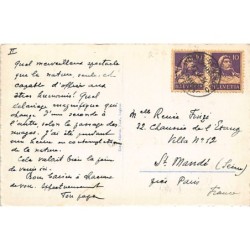 II
Quel merveilleux spectacle
que la nature, seule est
capable d'offrir aux
êtres humains! Quel
éclairage magnifique qui
change d'une seconde à
l'autre selon le passage des
nuages. J'ai été pendant
une heure en contemplation
de la nature.
Cela valait bien la peine
de venir ici.
Bons baisers à chacune
de vous. Affectueusement
Ton papa
HELVETIA 10
HELVETIA 10
Melle Renée
32, Chaussée de l'Etang
Villa N° 12
St Mandé (Seine)
près Paris
France